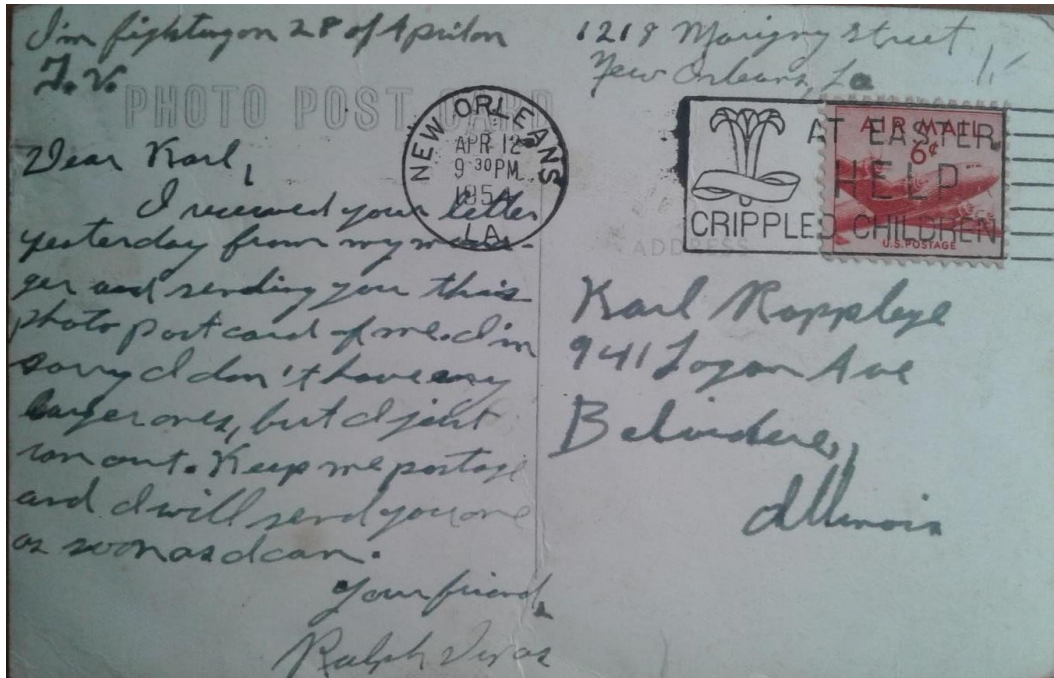 I'm fighting on 28 of April on
T.V.
1218 Marigny Street
New Orleans, La
PHOTO POST CARD
NEW ORLEANS
APR 12
9 30 PM
1954
LA.
AT EASTER
HELP
CRIPPLED CHILDREN
AIR MAIL
6¢
U.S. POSTAGE
ADDRESS
Dear Karl,
I received your letter
yesterday from my mana-
ger and sending you this
photo postcard of me. I'm
sorry I don't have any
larger ones, but I just
ran out. Keep me postage
and I will send you one
as soon as I can.
Your friend,
Ralph
Karl Rappleye
941 Logan Ave
Belvidere,
Illinois